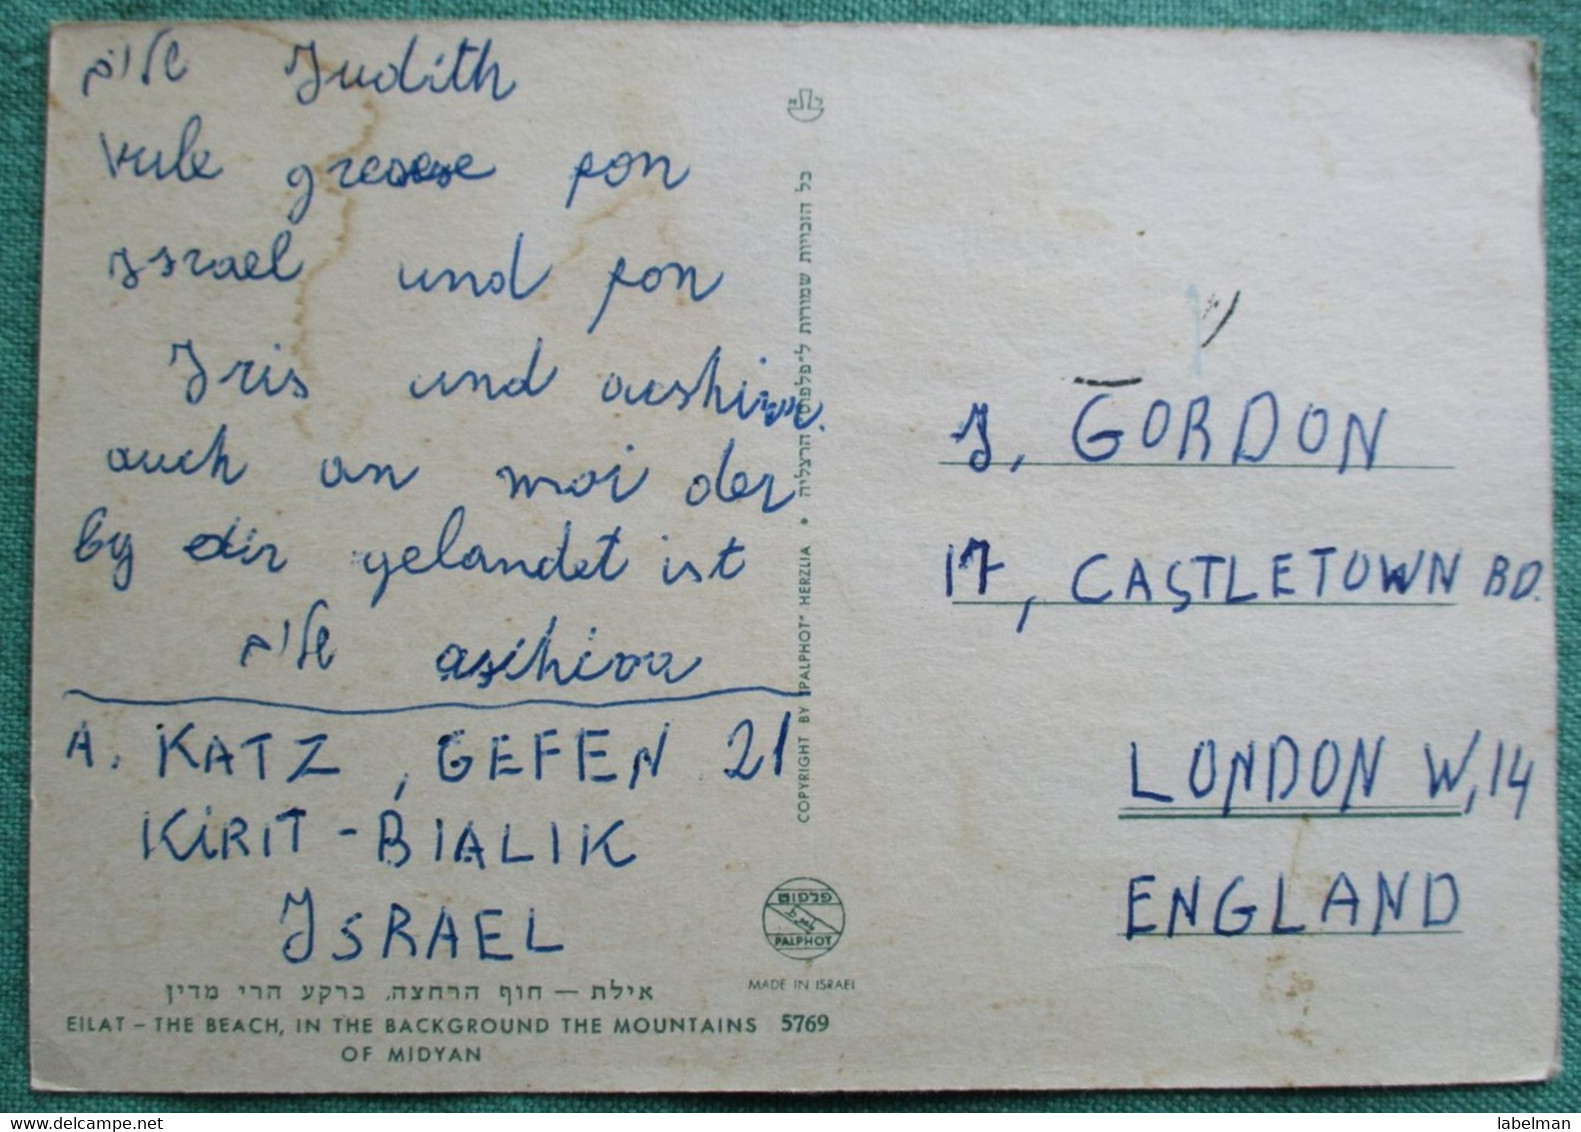 שלום Judith
viele gresese fon
israel und fon
Iris und
auch an moi der
by dir gelandet ist
שלום
A. KATZ, GEFEN 21
KIRIT-BIALIK
ISRAEL
אילת — חוף הרחצה, ברקע הרי מדין
EILAT – THE BEACH, IN THE BACKGROUND THE MOUNTAINS 5769
OF MIDYAN
כל הזכויות שמורות ל״פלפוט״ הרצליה • COPYRIGHT BY "PALPHOT" HERZLIA
פלפוט
PALPHOT
MADE IN ISRAEL
J. GORDON
17, CASTLETOWN RD.
LONDON W,14
ENGLAND
labelman
www.delcampe.net